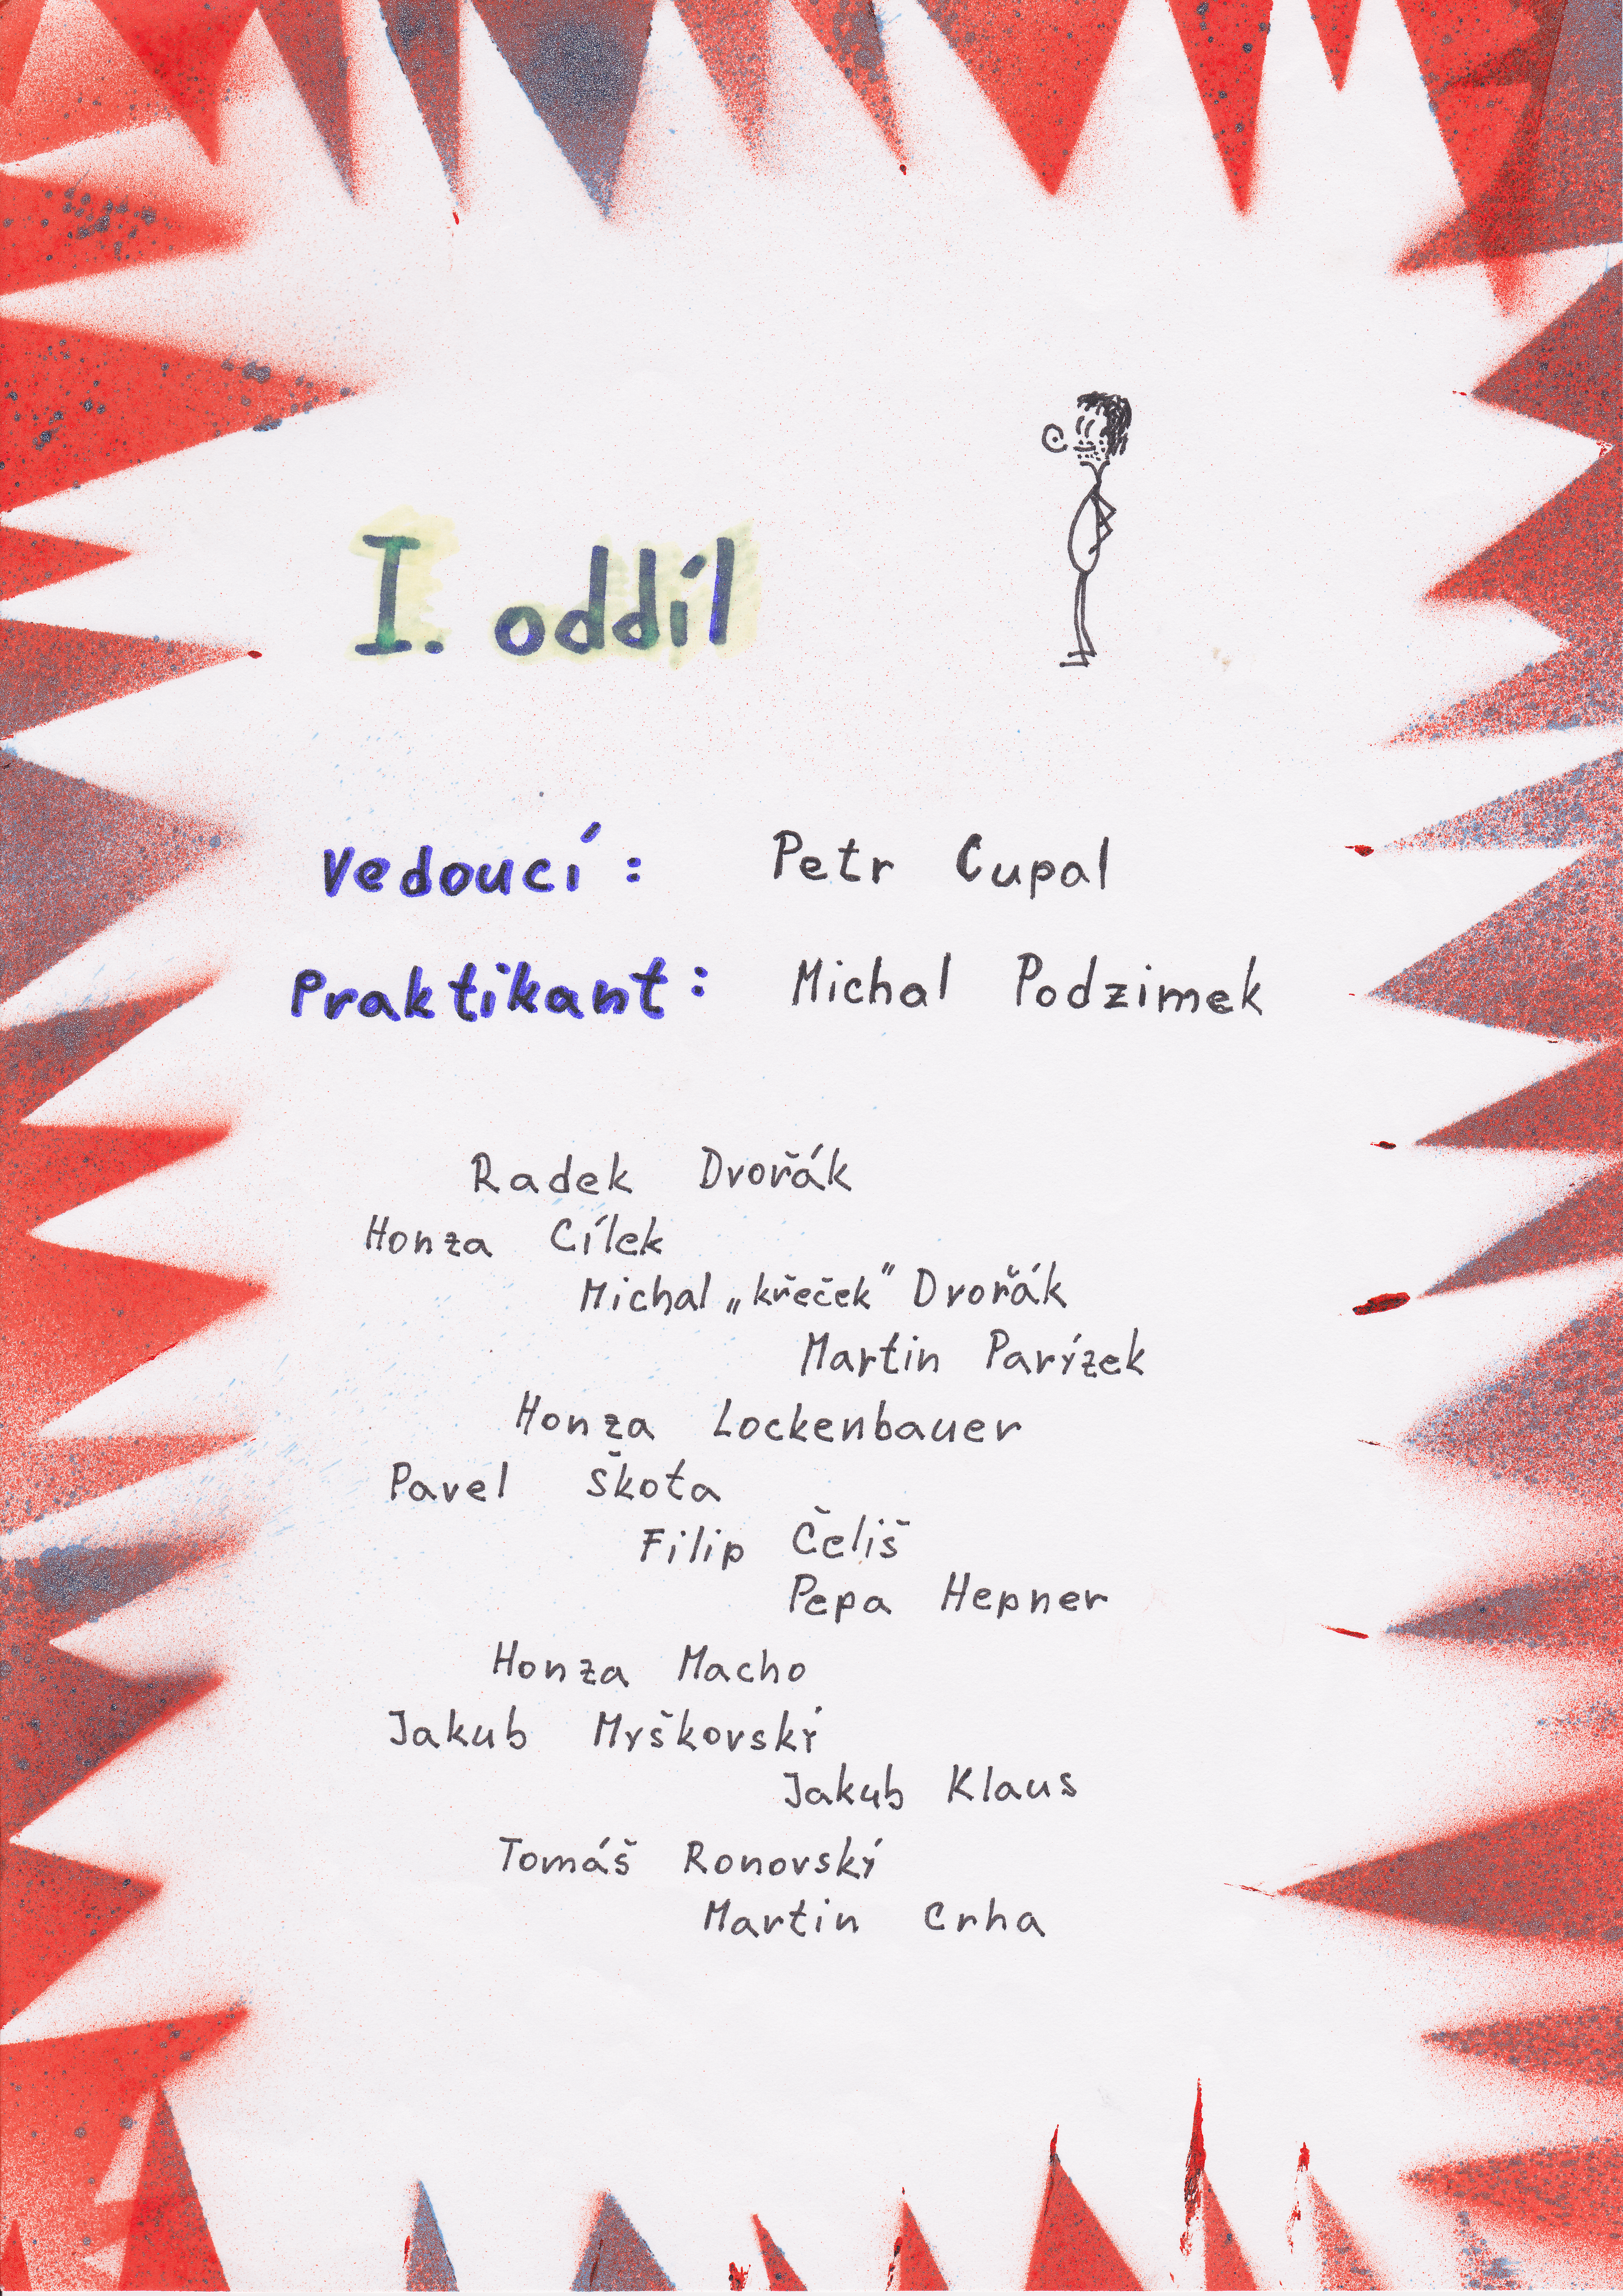 I. oddíl
Vedoucí: Petr Cupal
Praktikant: Michal Podzimek
Radek Dvořák
Honza Cílek
Michal „křeček" Dvořák
Martin Parýzek
Honza Lockenbauer
Pavel Škota
Filip Čeliš
Pepa Hepner
Honza Macho
Jakub Myškovský
Jakub Klaus
Tomáš Ronovský
Martin Crha